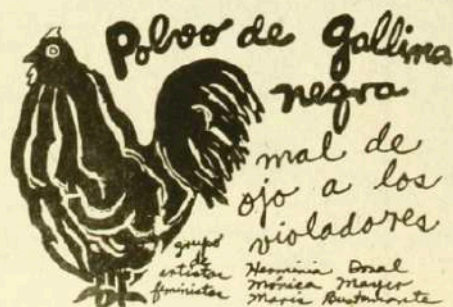 Polvo de gallina
negra
mal de
ojo a los
violadores
grupo
de
artistas
feministas
Herminia Dosal
Mónica Mayer
Maris Bustamante